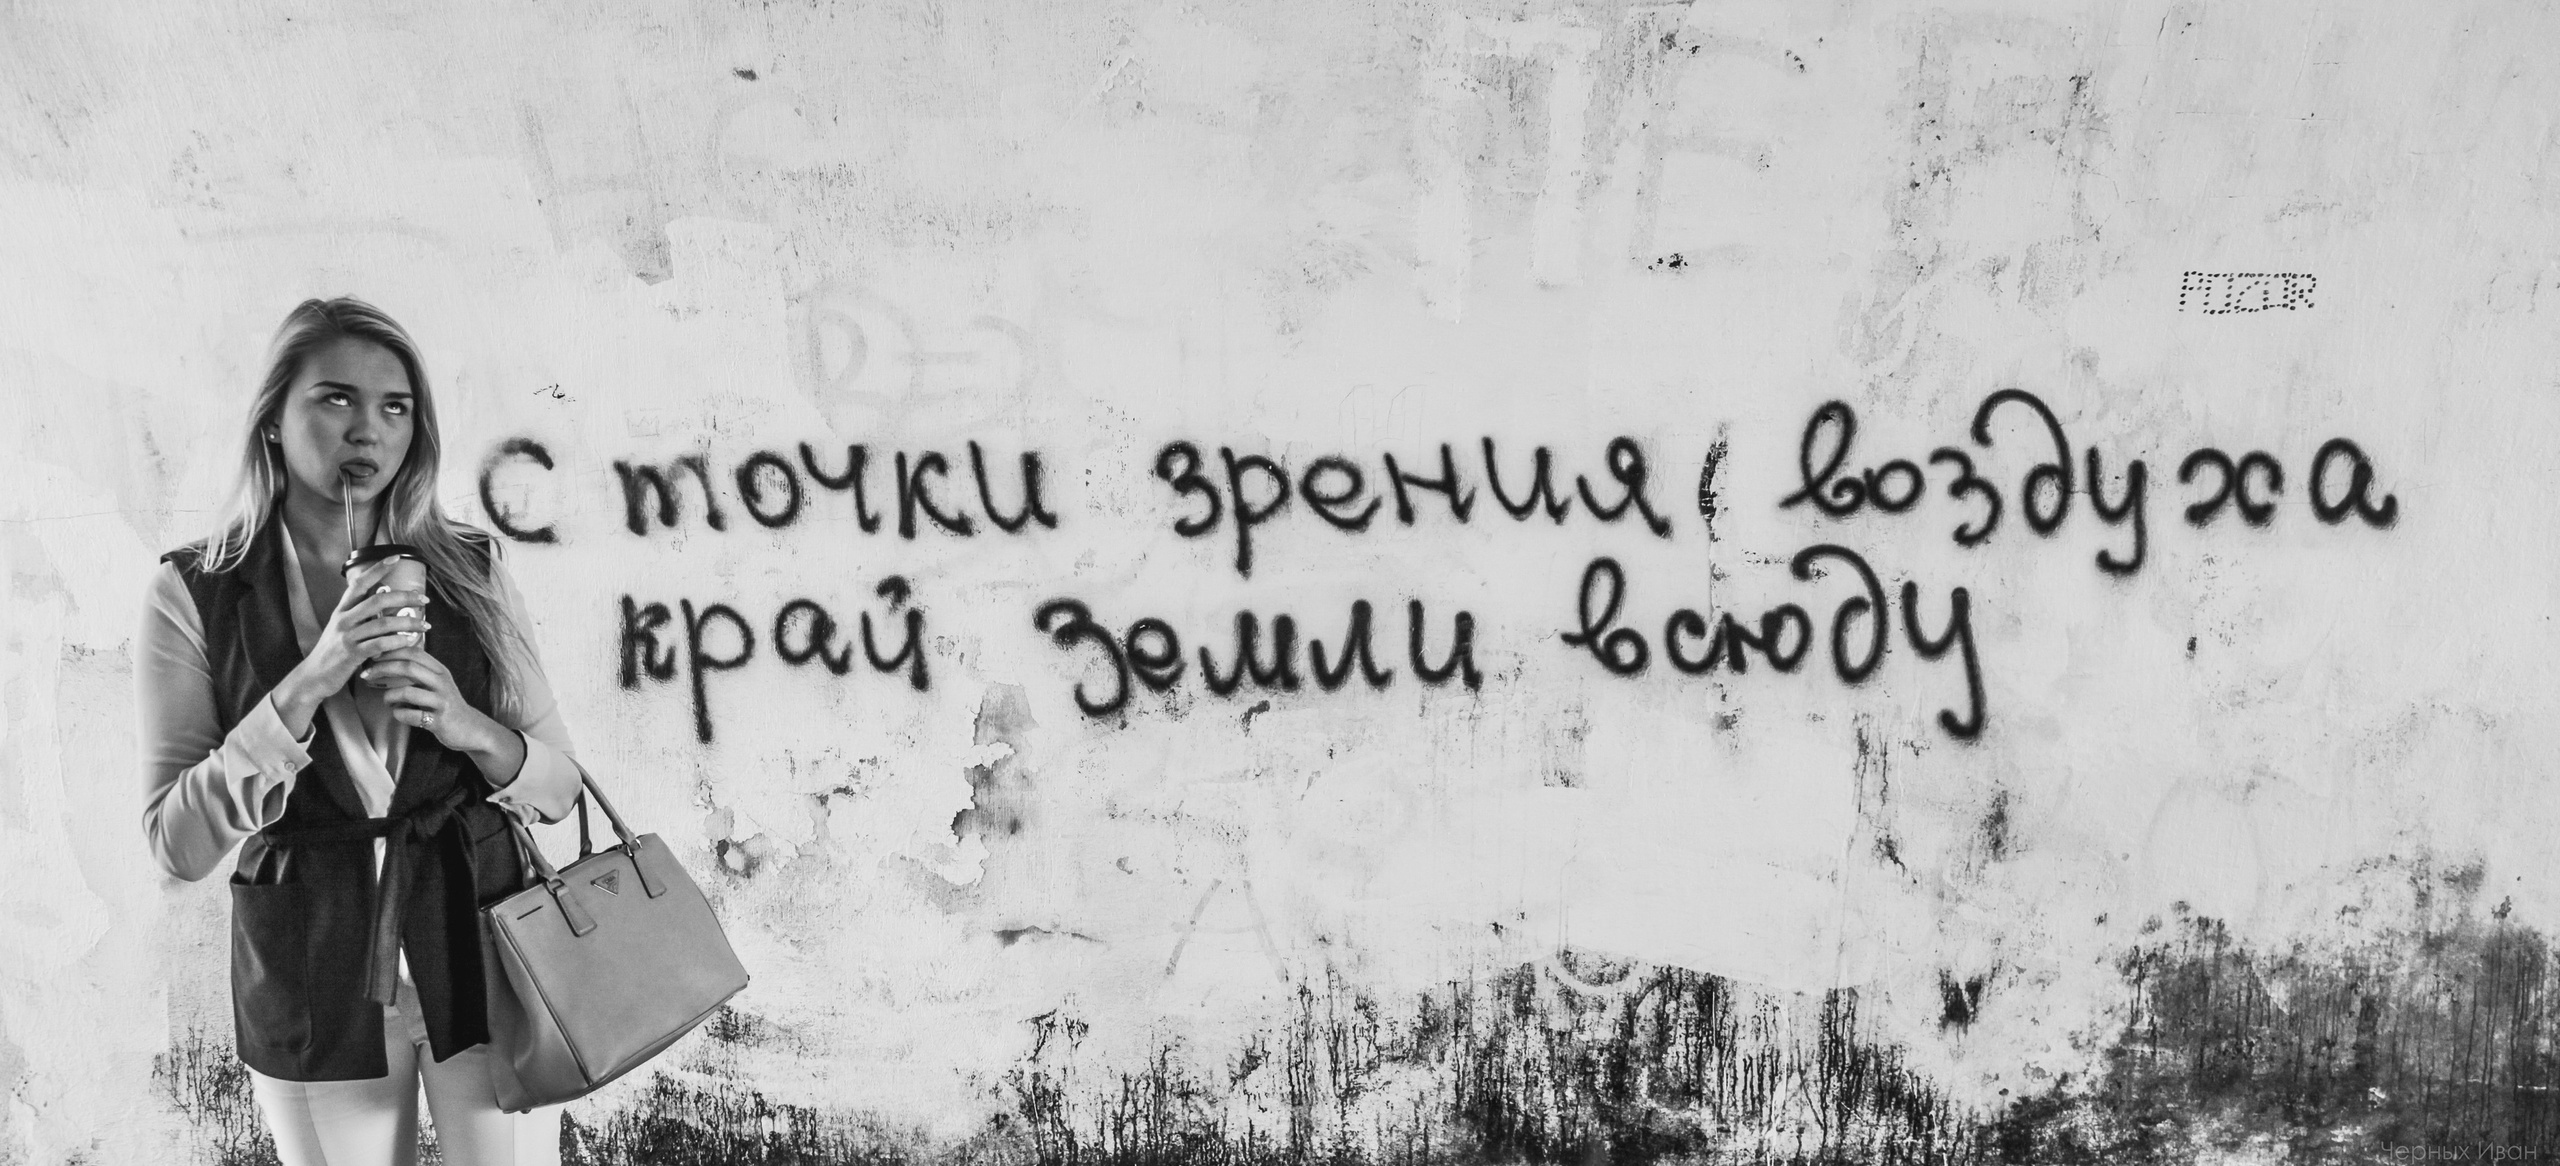 POZOR
с точки зрения воздуха
край земли всюду
Черных Иван